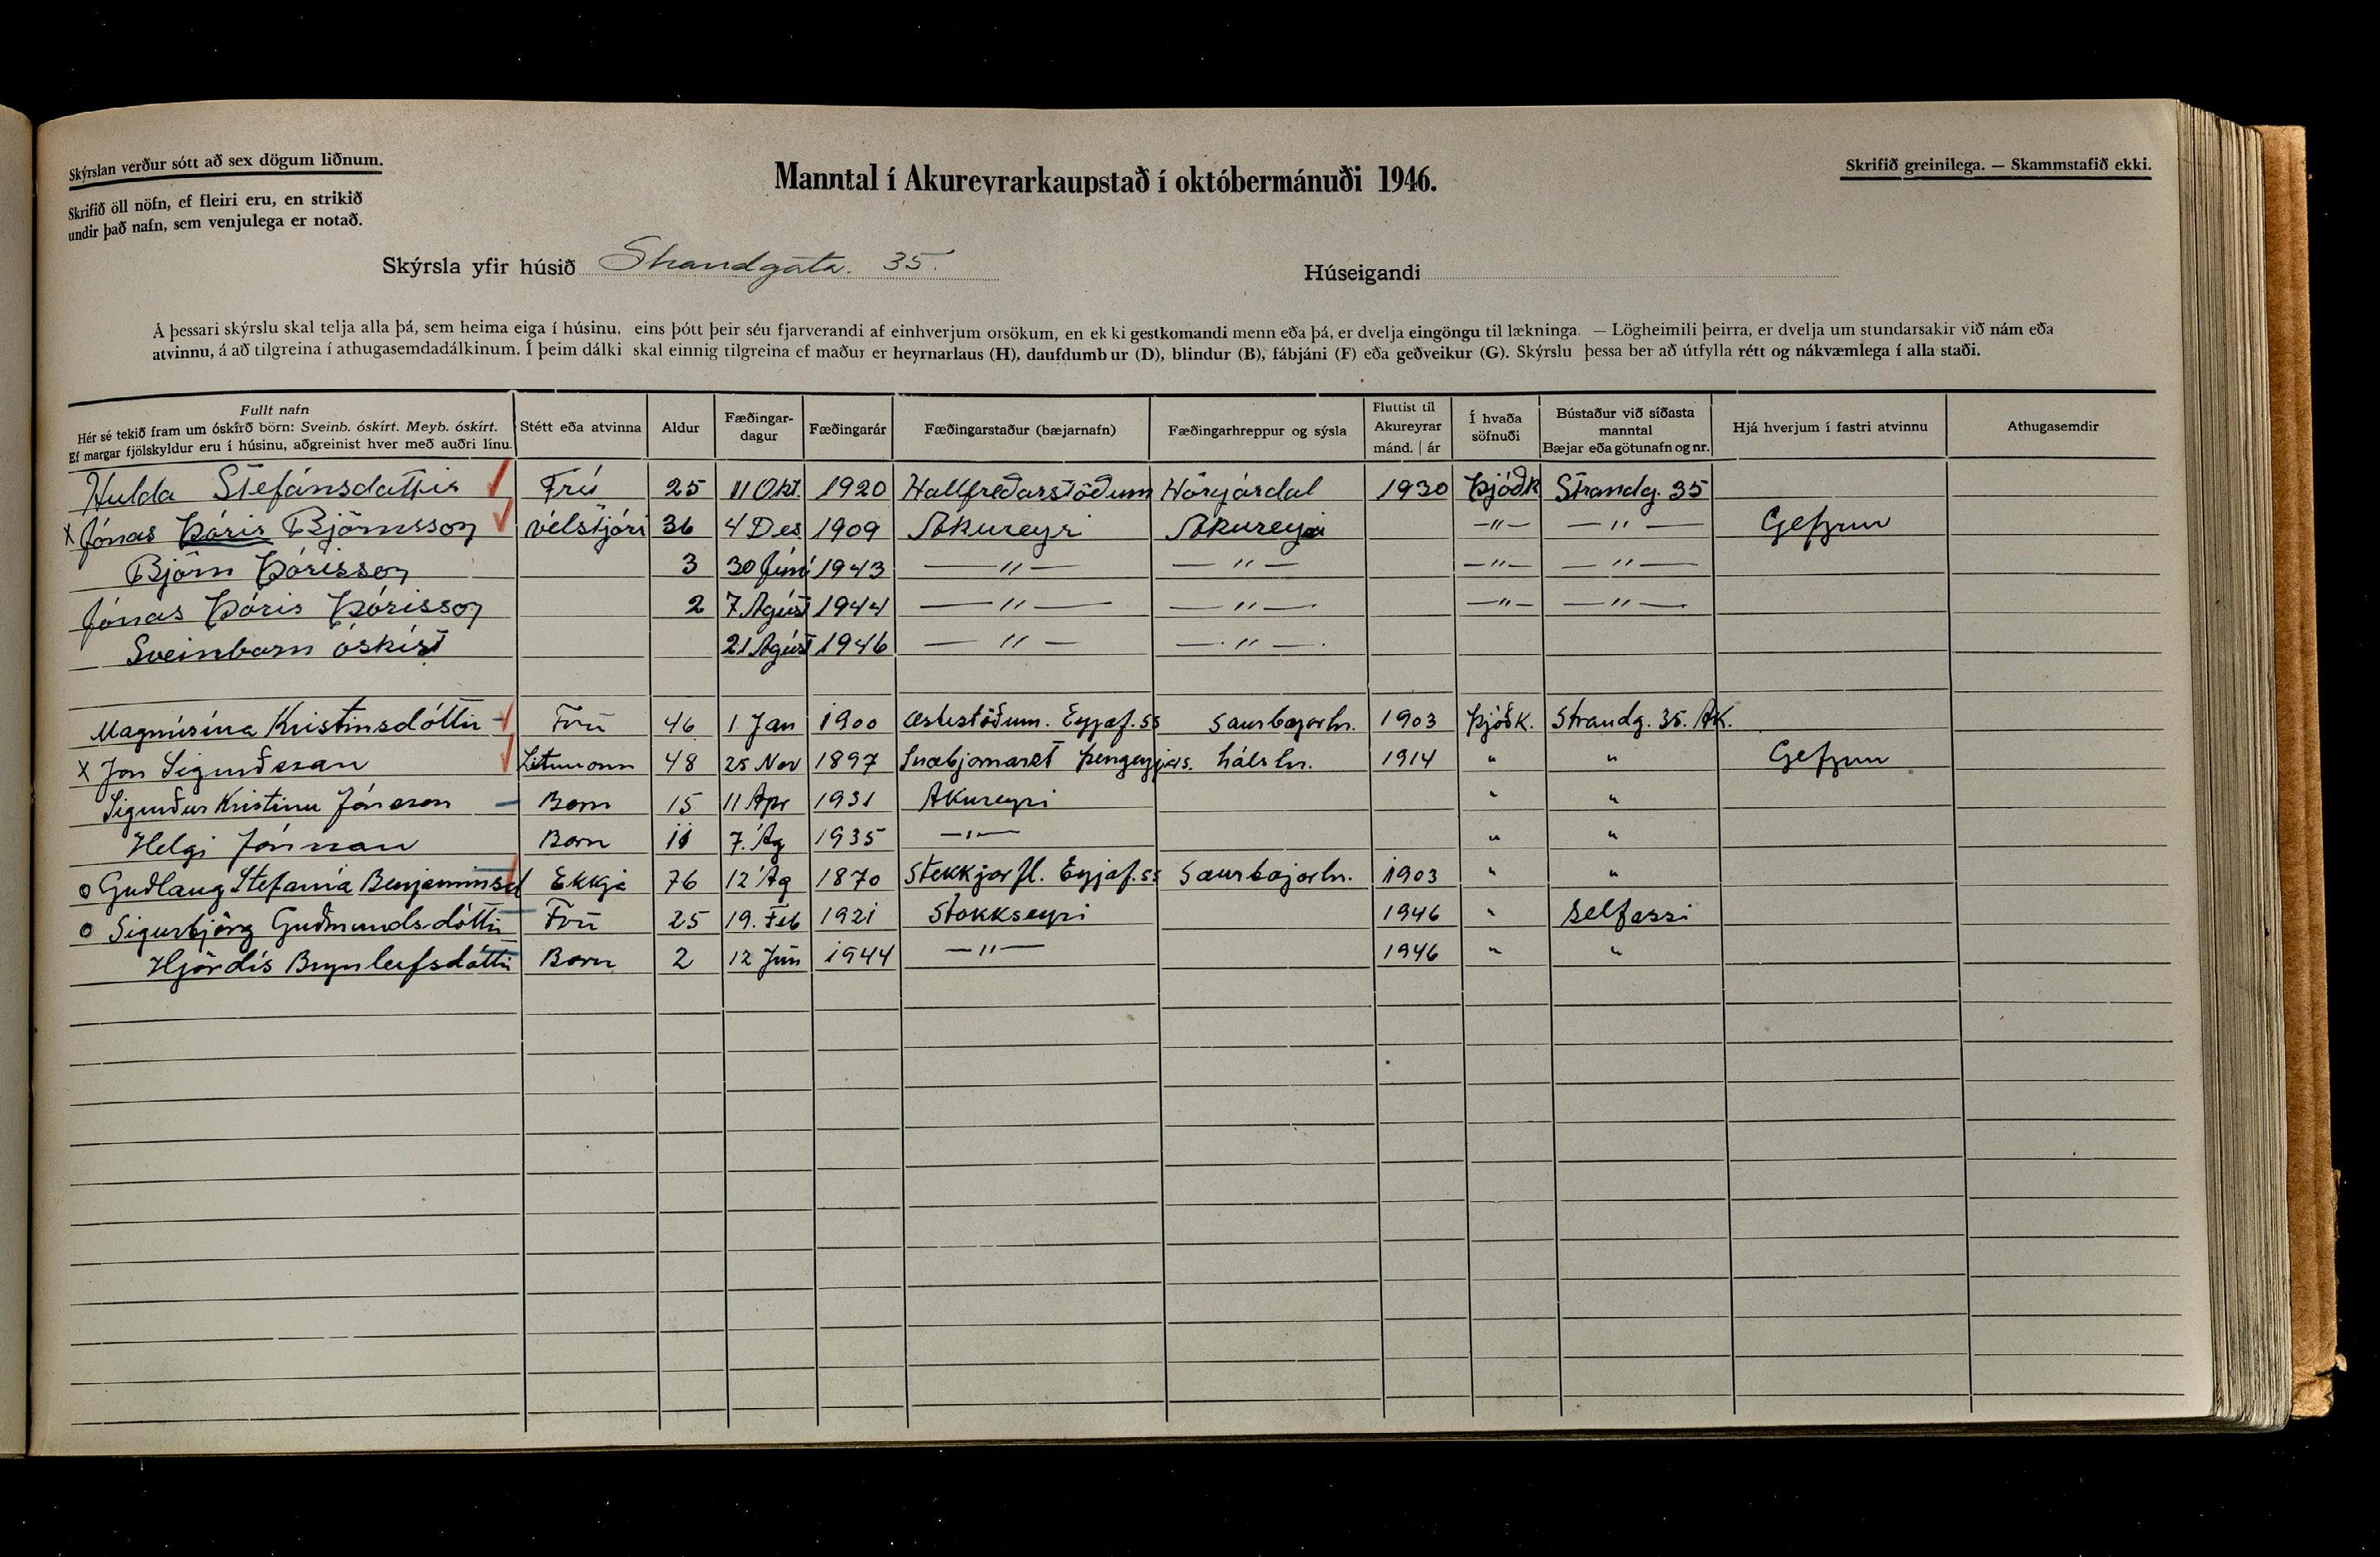 Skýrslan verður sótt að sex dögum liðnum.
Skrifið öll nöfn, ef fleiri eru, en strikið
undir það nafn, sem venjulega er notað.
Manntal í Akureyrarkaupstað í októbermánuði 1946.
Skrifið greinilega. — Skammstafið ekki.
Skýrsla yfir húsið Strandgata. 35. Húseigandi
Á þessari skýrslu skal telja alla þá, sem heima eiga í húsinu, eins þótt þeir séu fjarverandi af einhverjum orsökum, en ekki gestkomandi menn eða þá, er dvelja eingöngu til lækninga. — Lögheimili þeirra, er dvelja um stundarsakir við nám eða
atvinnu, á að tilgreina í athugasemdadálkinum. Í þeim dálki skal einnig tilgreina ef maður er heyrnarlaus (H), daufdumbur (D), blindur (B), fábjáni (F) eða geðveikur (G). Skýrslu þessa ber að útfylla rétt og nákvæmlega í alla staði.
Fullt nafn
Hér sé tekið fram um óskírð börn: Sveinb. óskírt. Meyb. óskírt.
Ef margar fjölskyldur eru í húsinu, aðgreinist hver með auðri línu.
Stétt eða atvinna
Aldur
Fæðingar-
dagur
Fæðingarár
Fæðingarstaður (bæjarnafn)
Fæðingarhreppur og sýsla
Fluttist til
Akureyrar
mánd. | ár
Í hvaða
söfnuði
Bústaður við síðasta
manntal
Bæjar eða götunafn og nr.
Hjá hverjum í fastri atvinnu
Athugasemdir
Hulda Stefánsdóttir Frú 25 11 Okt. 1920 Hallfreðarstöðum Hörgárdal 1930 Þjóðk Strandg. 35
x Jónas Þóris Björnsson vélstjóri 36 4 Des 1909 Akureyri Akureyri —"— —"— Gefjun
Björn Þórisson 3 30 Júní 1943 —"— —"— —"— —"—
Jónas Þóris Þórisson 2 7 Ágúst 1944 —"— —"— —"— —"—
Sveinbarn óskírt 21 Ágúst 1946 —"— —"—
Magnúsína Kristinsdóttir Frú 46 1. Jan 1900 Eyjaf.ss Saurbæjarhr. 1903 Þjóðk. Strandg. 35. Ak.
x Jón Sigurðsson 48 25 Nov 1897 Þengeyjars. hálshr. 1914 " " Gefjun
Sigurður Kristinn Jónsson Barn 15 11 Apr 1931 Akureyri " "
Helgi Jónsson Barn 11 7. Ág 1935 —"— " "
o Guðlaug Stefanía Benjamínsd Ekkja 76 12 Ág 1870 Stekkjarfl. Eyjaf.ss Saurbæjarhr. 1903 " "
o Sigurbjörg Guðmundsdóttir Frú 25 19. Feb 1921 Stokkseyri 1946 " Selfossi
Hjördís Brynleifsdóttir Barn 2 12 Jún 1944 —"— 1946 " "